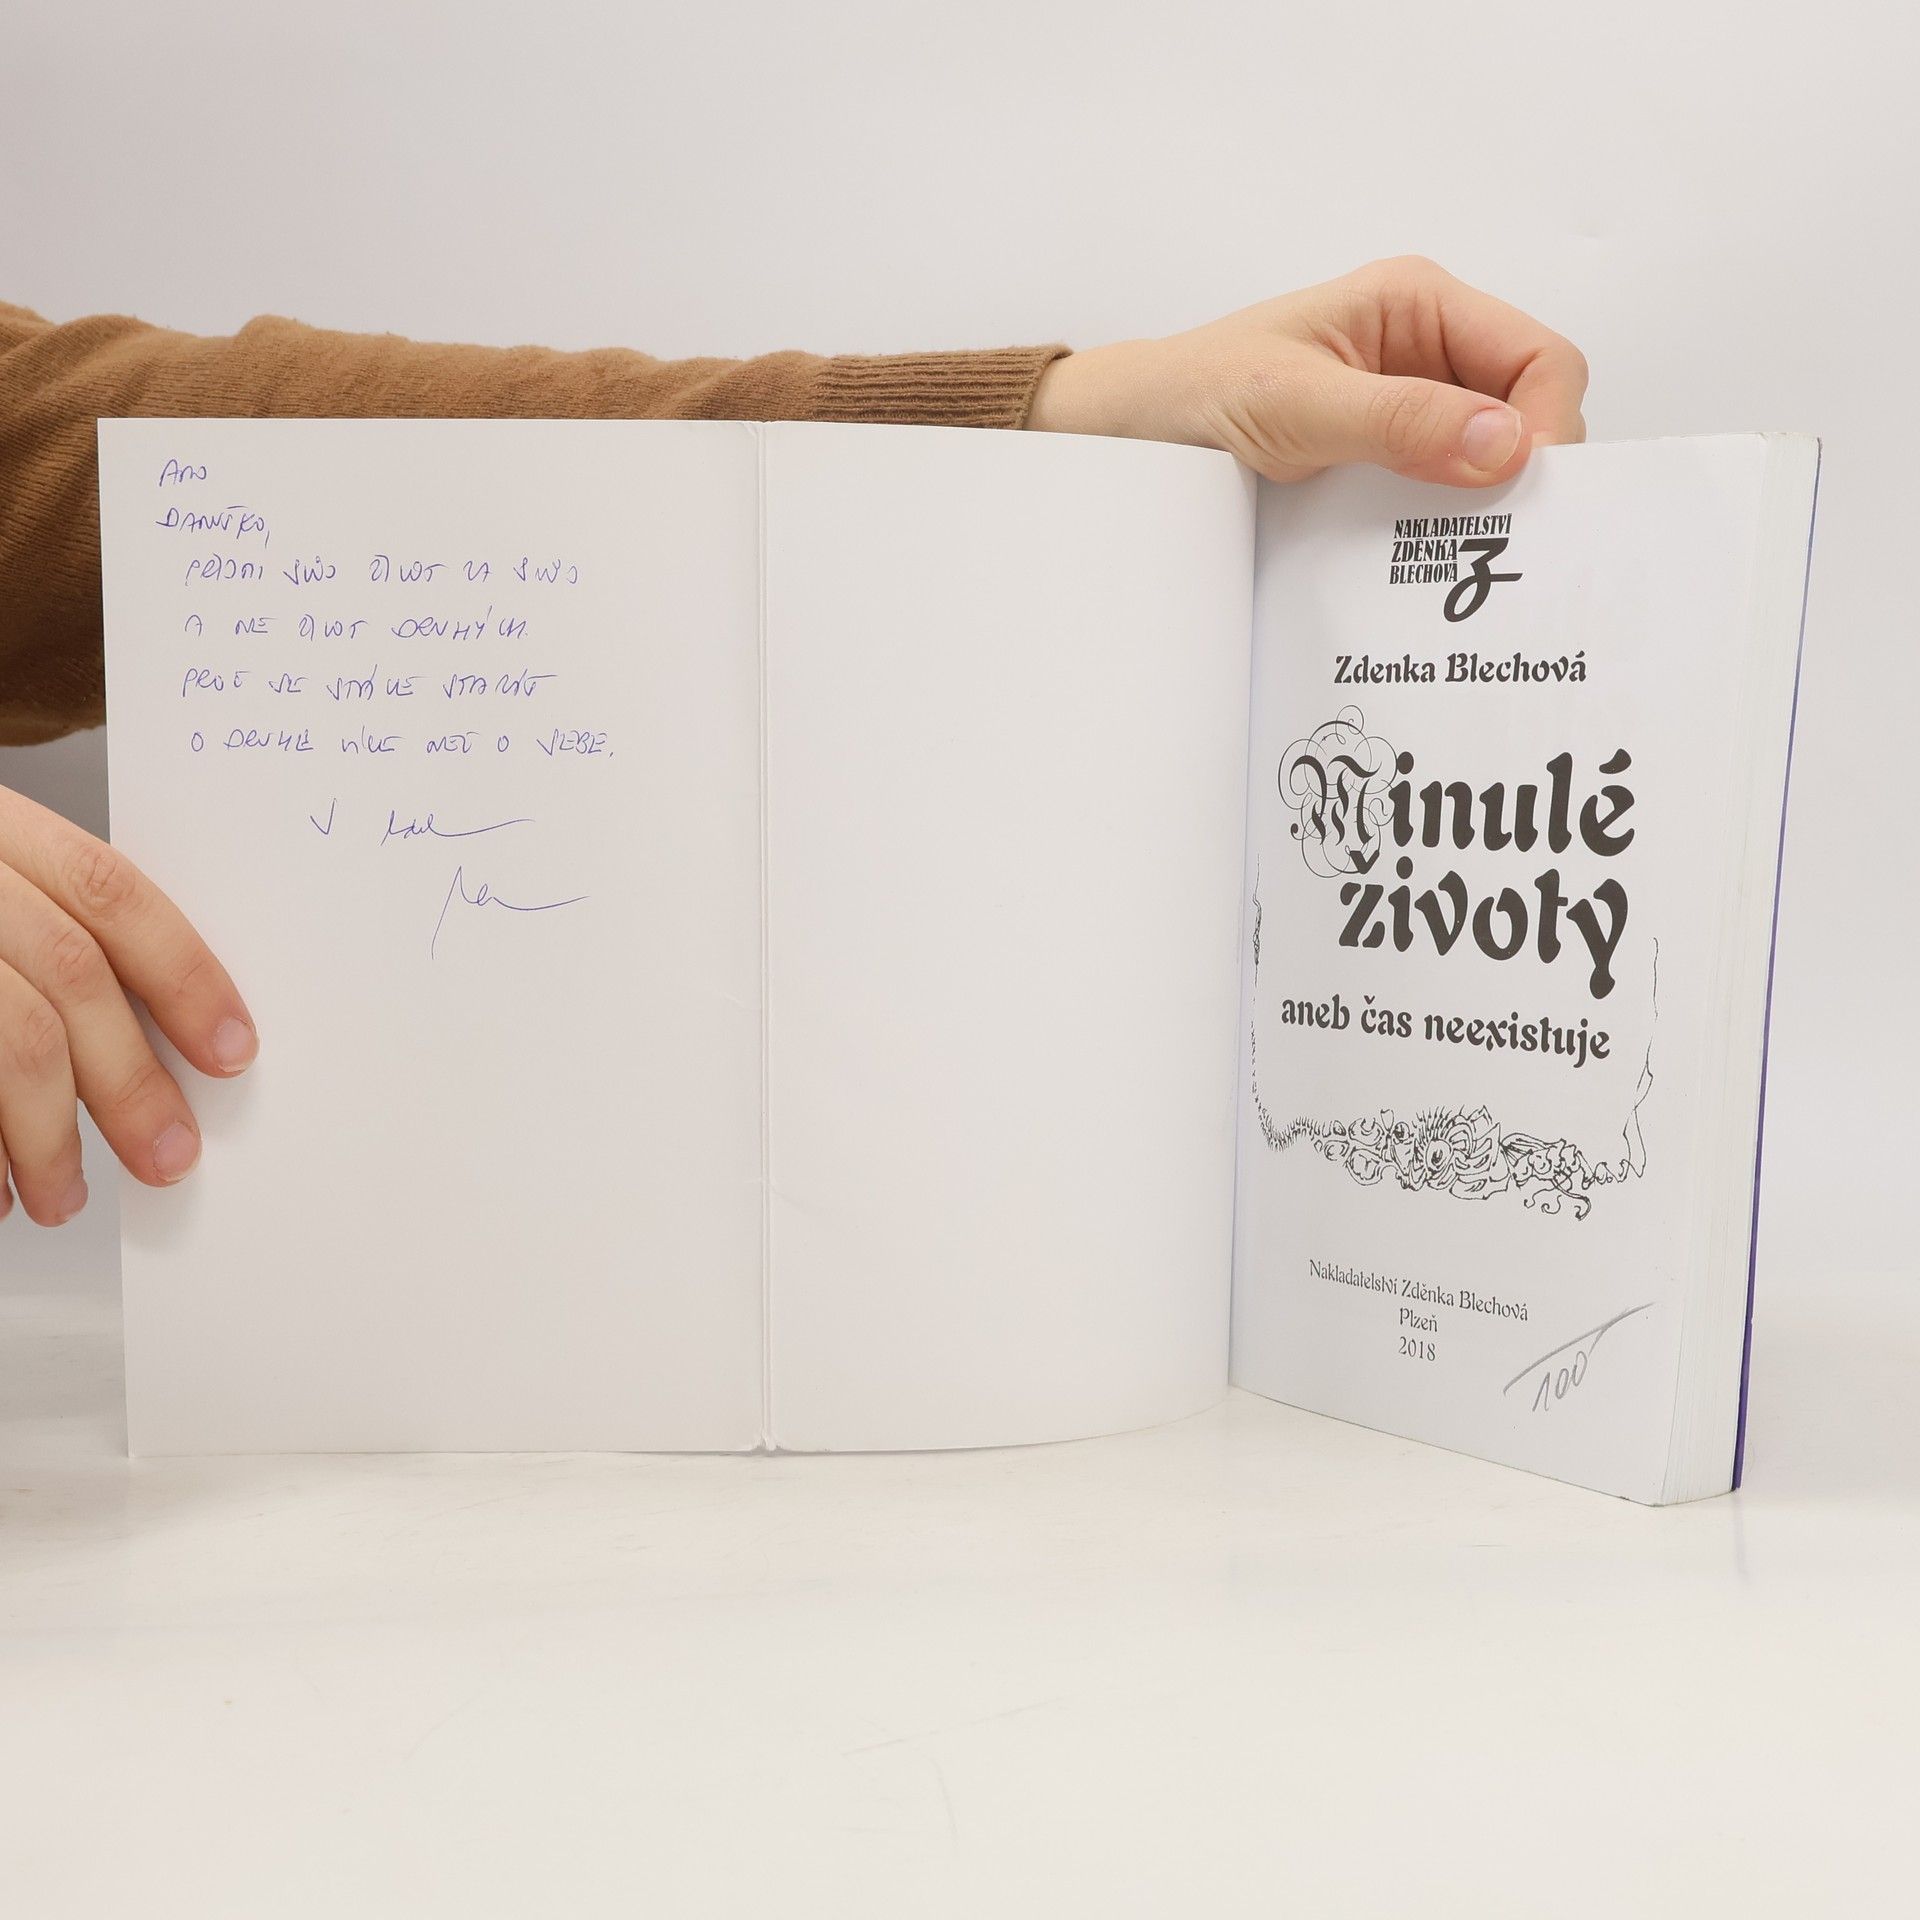 DANUŠKO,
PŘIJMI SVŮJ ŽIVOT ZA SVŮJ
A NE ŽIVOT DRUHÝCH.
PROČ SE STÁLE STARÁŠ
O DRUHÉ VÍCE NEŽ O SEBE.
V
NAKLADATELSTVÍ
ZDĚNKA
BLECHOVÁ
Zdenka Blechová
Minulé
životy
aneb čas neexistuje
Nakladatelství Zděnka Blechová
Plzeň
2018
100